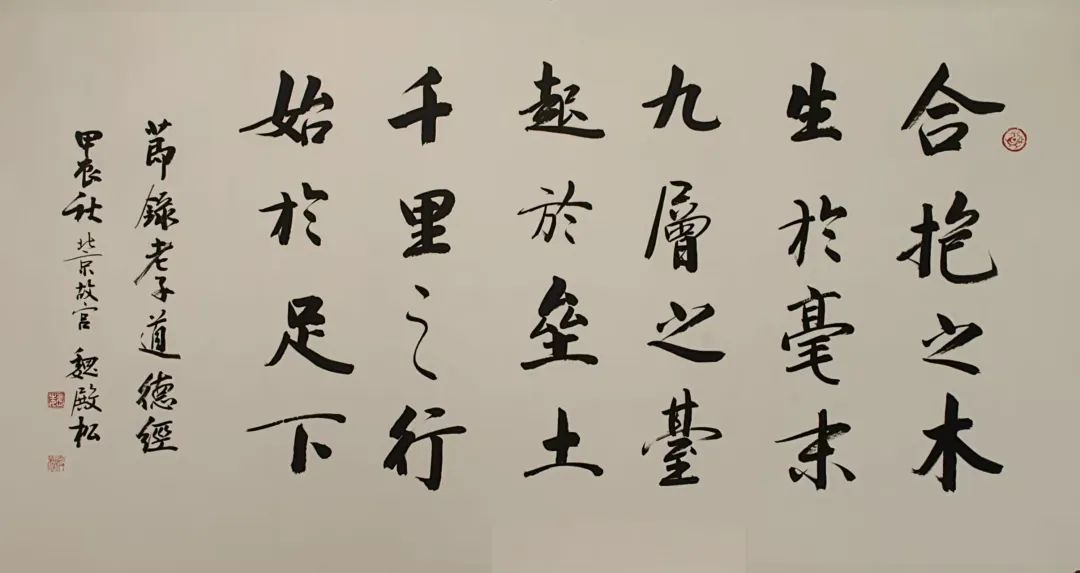 合抱之木
生於毫末
九層之臺
起於垒土
千里之行
始於足下
節錄老子道德經
甲辰秋北京故宫魏殿松